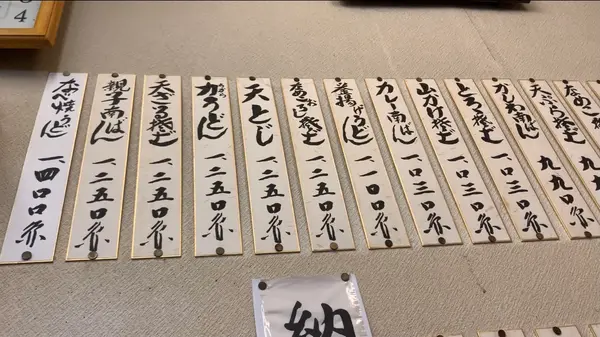 なめこ蕎麦 九九〇
天ぷら蕎麦 九九〇
かしわ南ばん 一、〇三〇円
とろろ蕎麦 一、〇三〇円
山かけ蕎麦 一、〇三〇円
カレー南ばん 一、〇三〇円
釜揚げうどん 一、一〇〇円
なめこおろし蕎麦 一、二五〇円
天とじ 一、二五〇円
力うどん 一、二五〇円
天ざる蕎麦 一、二五〇円
親子南ばん 一、二五〇円
なべ焼うどん 一、四〇〇円
納
4